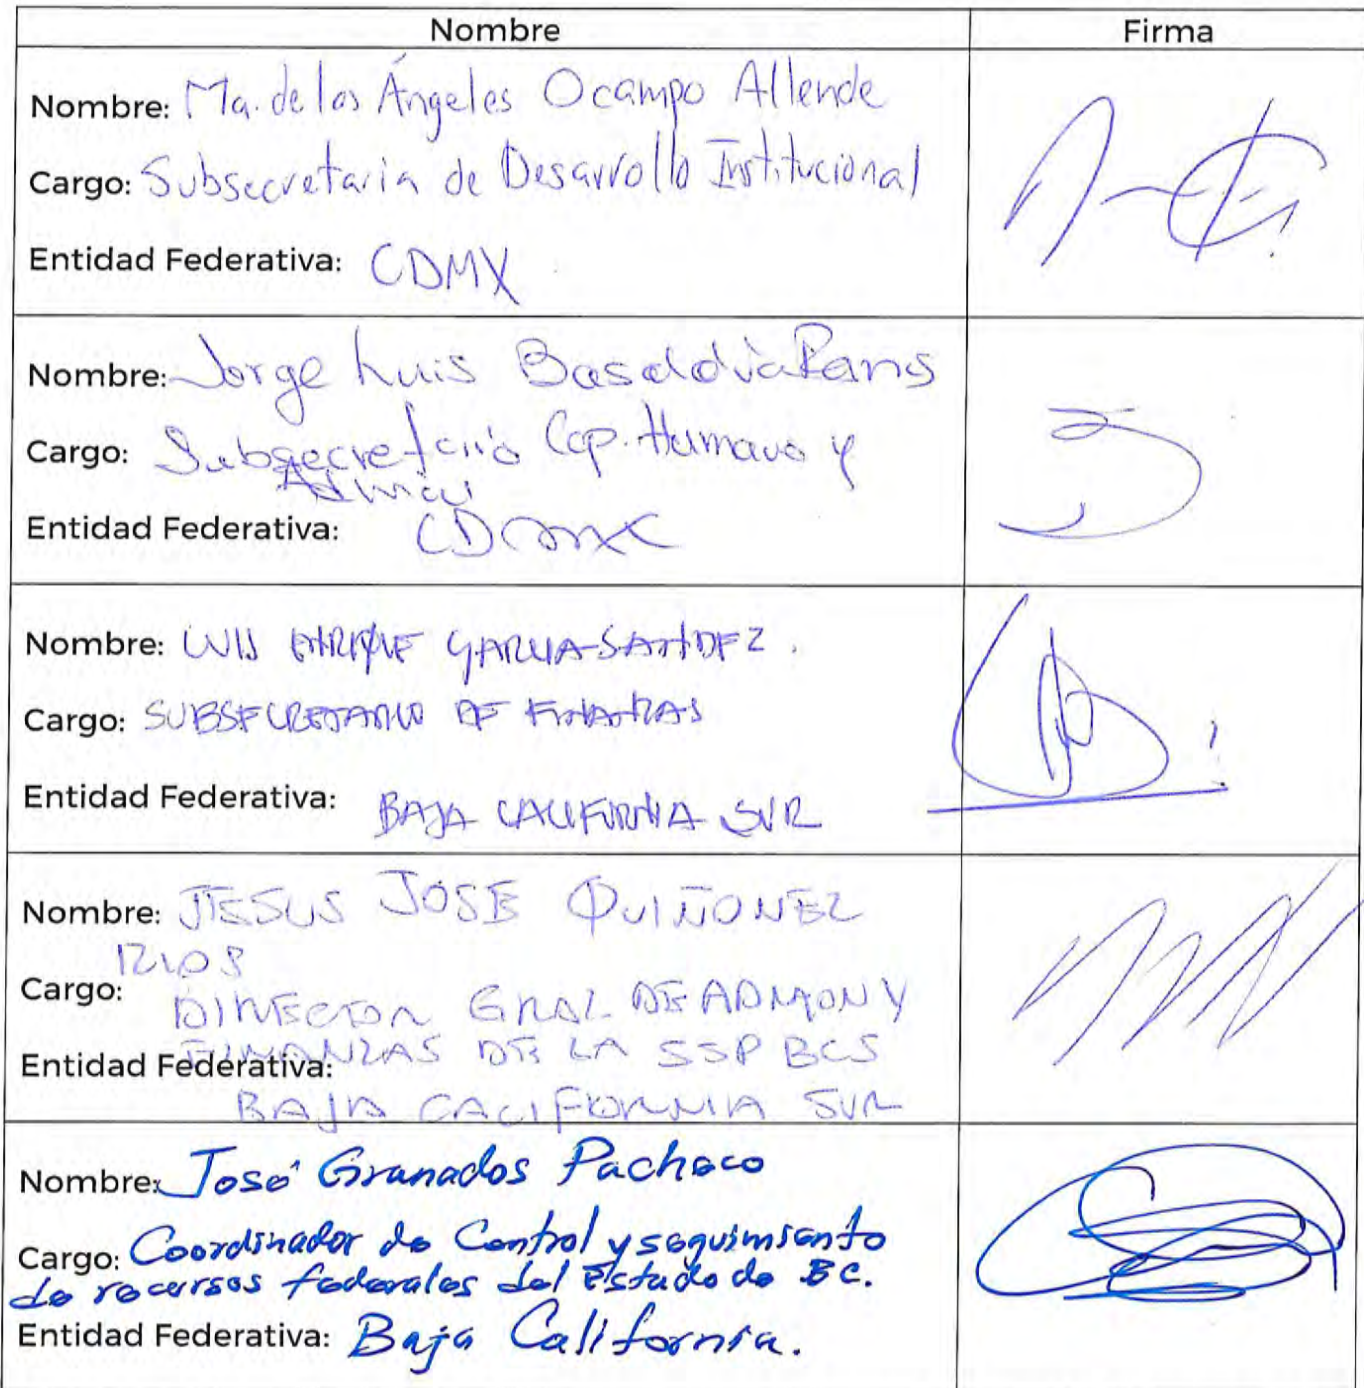 Nombre Firma
Nombre: Ma. de los Ángeles Ocampo Allende
Cargo: Subsecretaria de Desarrollo Institucional
Entidad Federativa: CDMX
Nombre: Jorge Luis Basaldúa
Cargo: Subsecretario Cap. Humano y
Admón
Entidad Federativa: CDMX
Nombre: LUIS ENRIQUE GARCIA
Cargo: SUBSECRETARIO DE FINANZAS
Entidad Federativa: BAJA CALIFORNIA SUR
Nombre: JESUS JOSE QUIÑONEZ
RIOS
Cargo: DIRECTOR GRAL DE ADMON Y
FINANZAS DE LA SSP BCS
Entidad Federativa:
BAJA CALIFORNIA SUR
Nombre: José Granados Pacheco
Cargo: Coordinador de Control y seguimiento
de recursos federales del Estado de BC.
Entidad Federativa: Baja California.